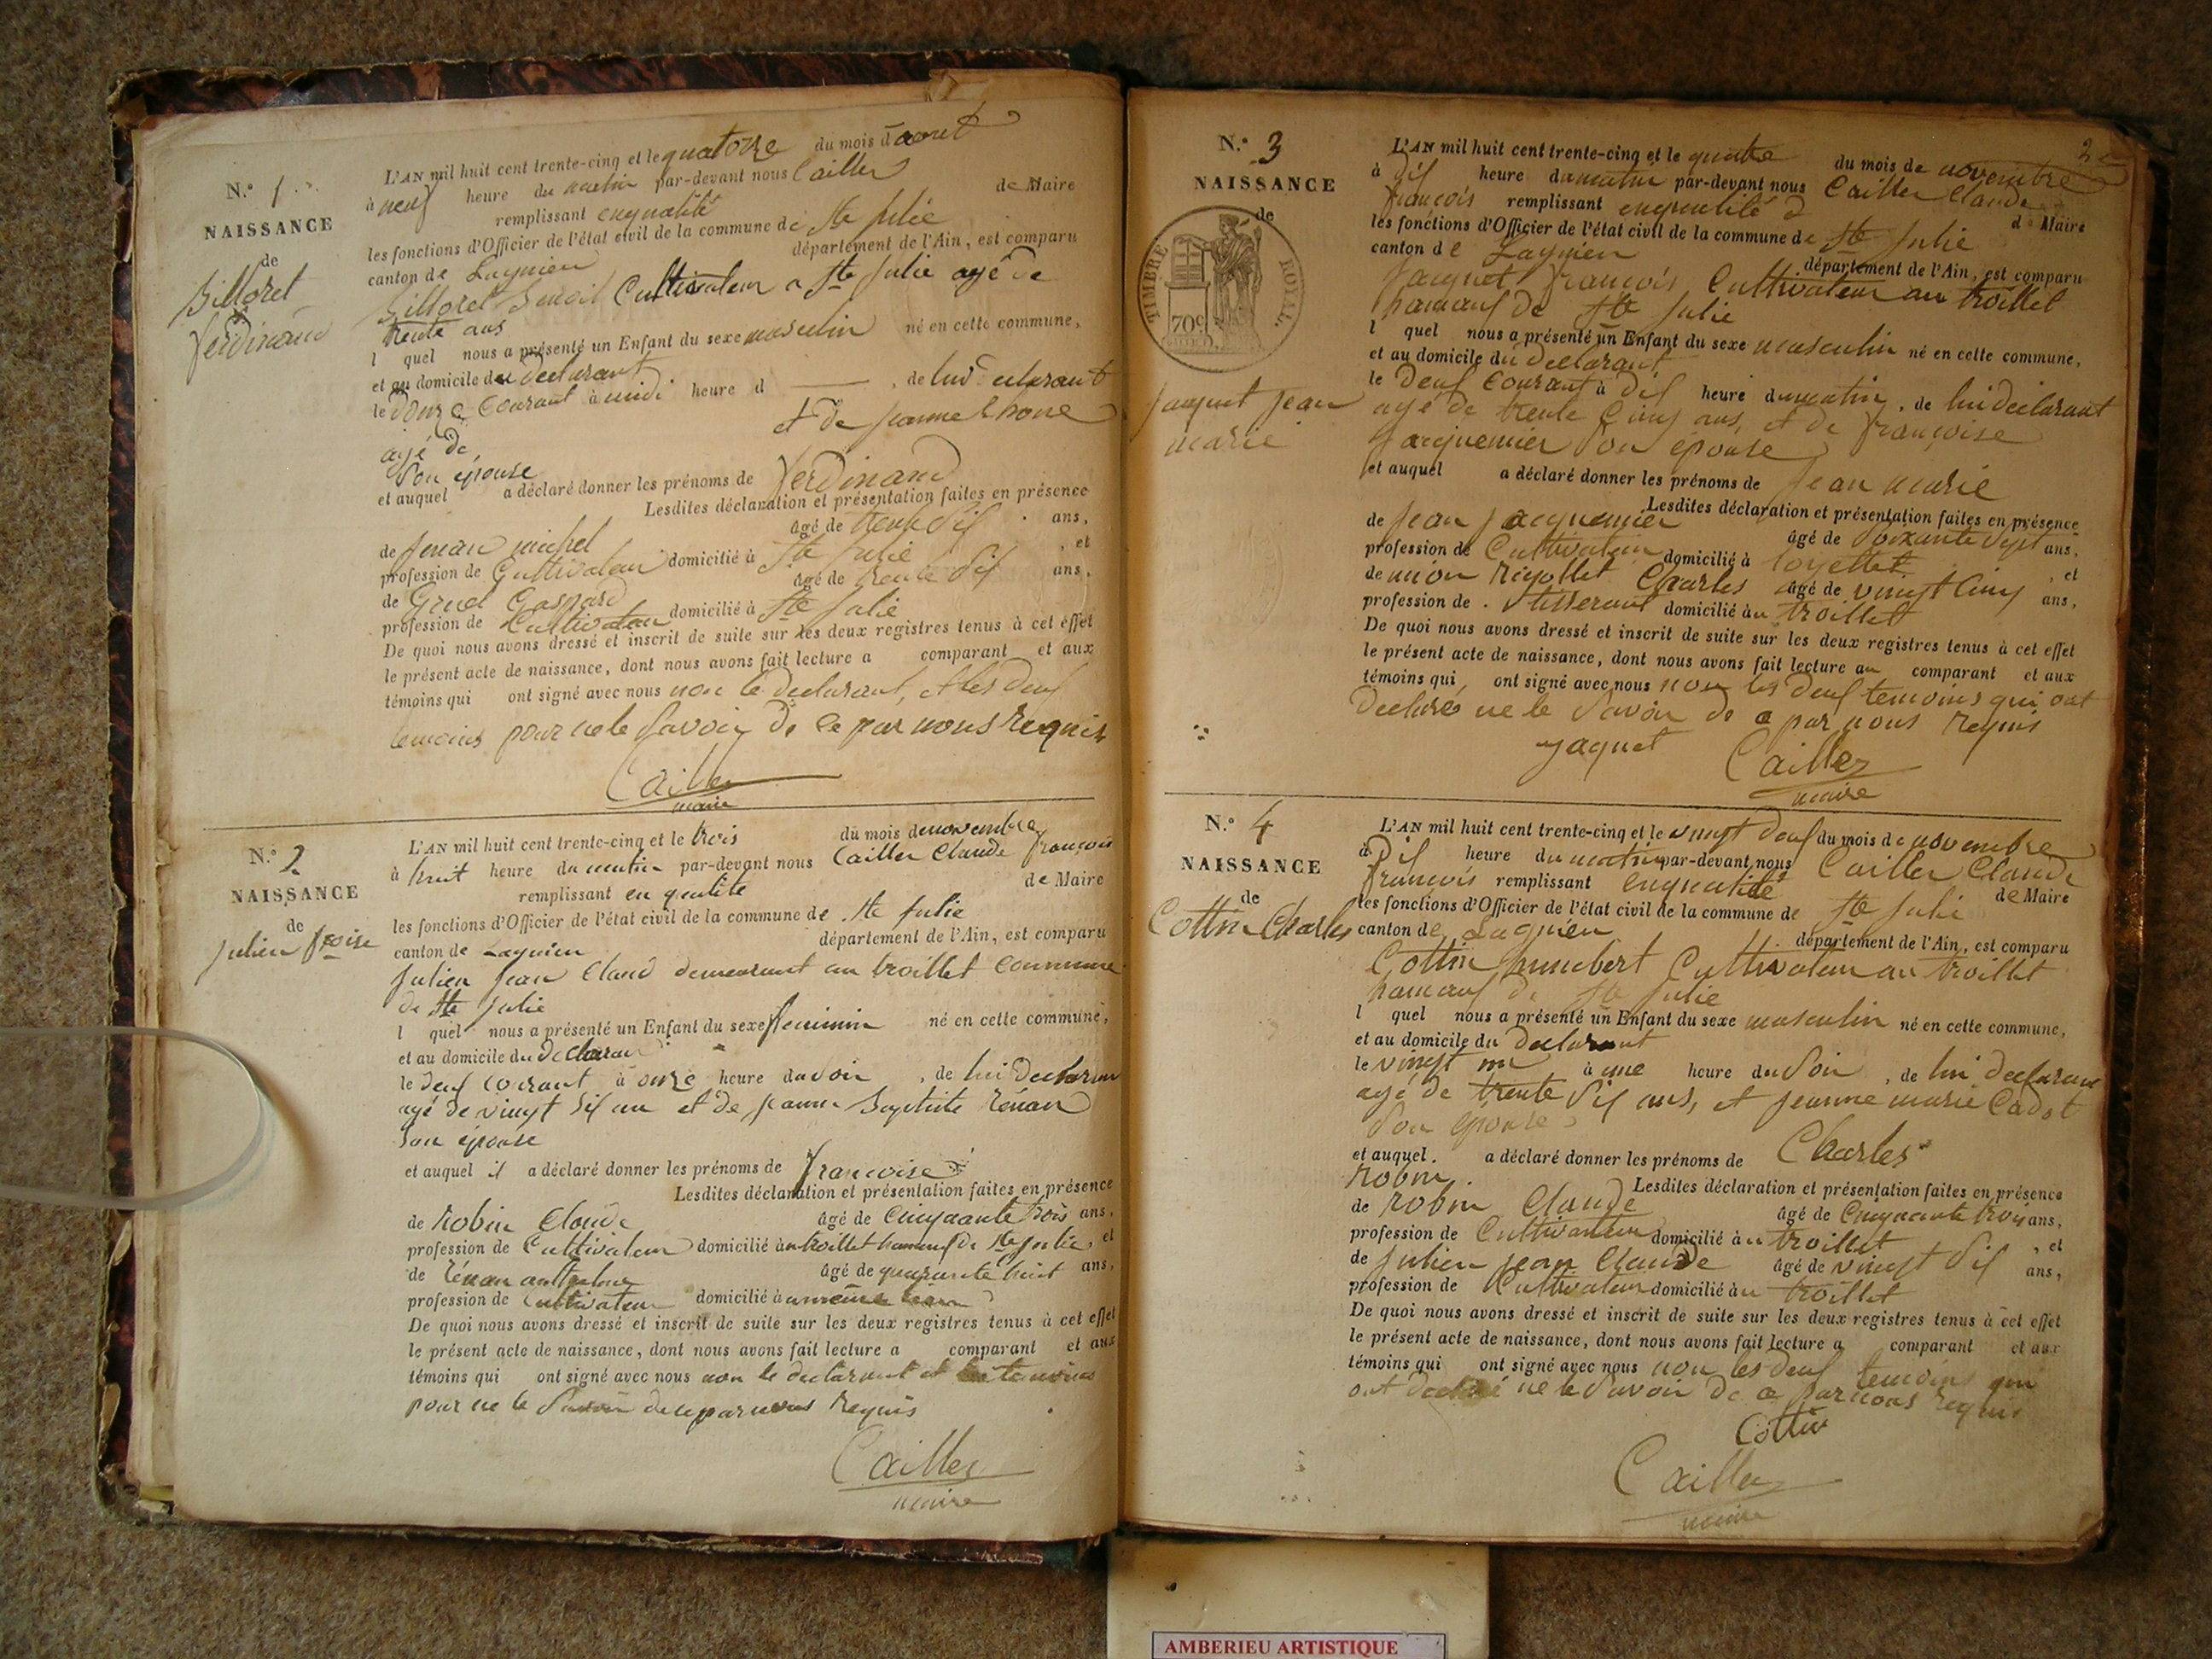 N.° 1
NAISSANCE
de
Billoret
Ferdinand
L'AN mil huit cent trente-cinq et le quatorze du mois d'aout
à neuf heure du matin par-devant nous Cailler
remplissant enqualité de Maire
les fonctions d'Officier de l'état civil de la commune de Ste Julie
canton de Lagnieu département de l'Ain, est comparu
Billoret Benoit Cultivateur a Ste Julie agé de
trente ans
l quel nous a présenté un Enfant du sexe masculin né en cette commune,
et au domicile du declarant
le Douze Courant à midi heure d , de lui declarant
et de jeanne
agé de
Son épouse
et auquel a déclaré donner les prénoms de ferdinand
Lesdites déclaration et présentation faites en présence
de michel âgé de trente Sif ans,
profession de Cultivateur domicilié à Ste Julie , et
de Gruel Gaspard âgé de trente Sif ans,
profession de Cultivateur domicilié à Ste Julie
De quoi nous avons dressé et inscrit de suite sur les deux registres tenus à cet effet
le présent acte de naissance, dont nous avons fait lecture a comparant et aux
témoins qui ont signé avec nous non le declarant, et les deuf
temoins pour ne le Savoir De ce par nous Requis
Cailler
maire
N.° 2
NAISSANCE
de
Julien froise
L'AN mil huit cent trente-cinq et le trois du mois de novembre
à huit heure du matin par-devant nous Cailler Claude françois
remplissant en qualité de Maire
les fonctions d'Officier de l'état civil de la commune de Ste Julie
canton de Lagnieu département de l'Ain, est comparu
Julien jean Claud demeurant au troillet commune
de Ste Julie
l quel nous a présenté un Enfant du sexe feminin né en cette commune,
et au domicile du declaran
le deuf courant à onze heure du soir , de lui declaran
agé de vingt Sif an et de jeanne Baptiste Rénan
Son épouse
et auquel il a déclaré donner les prénoms de francoise
Lesdites déclaration et présentation faites en présence
de Robin Claude âgé de Cinquante trois ans,
profession de Cultivateur domicilié à utroillet hameauf de Ste Julie, et
de Rénan âgé de quarante huit ans,
profession de Cultivateur domicilié à umeme
De quoi nous avons dressé et inscrit de suite sur les deux registres tenus à cet effet
le présent acte de naissance, dont nous avons fait lecture a comparant et aux
témoins qui ont signé avec nous non le declarant et les temoins
pour ne le Savoir de ce par nous Requis
Cailler
maire
2
N.° 3
NAISSANCE
de
TIMBRE ROYAL.
70c.
jaquet jean
marie
L'AN mil huit cent trente-cinq et le quatre du mois de novembre
à Dif heure dumatin par-devant nous Cailler Claude
françois remplissant enqualité d de Maire
les fonctions d'Officier de l'état civil de la commune de Ste Julie
canton de Lagnieu département de l'Ain, est comparu
Jacquet françois Cultivateur au troillet
hamauf de Ste Julie
l quel nous a présenté un Enfant du sexe masculin né en cette commune,
et au domicile du declarant
le Deuf Courant à Dif heure dumatin , de lui declarant
agé de trente Cinq ans, et de françoise
Jacquemier Son épouse
et auquel a déclaré donner les prénoms de jean marie
Lesdites déclaration et présentation faites en présence
de jean jacquemier âgé de Soixante Sept ans,
profession de Cultivateur domicilié à loyettet , et
de mion Rigollet Charles âgé de vingt Cinq ans,
profession de tisserant domicilié àu troillet
De quoi nous avons dressé et inscrit de suite sur les deux registres tenus à cet effet
le présent acte de naissance, dont nous avons fait lecture au comparant et aux
témoins qui ont signé avec nous non les deuf temoins qui ont
Declaré ne le Savoir de ce par nous Requis
jaquet
Cailler
maire
N.° 4
NAISSANCE
de
Cottin Charles
L'AN mil huit cent trente-cinq et le vingt deuf du mois de novembre
à Dif heure du matin par-devant nous Cailler Claude
françois remplissant enqualité de Maire
les fonctions d'Officier de l'état civil de la commune de Ste Julie
canton de Lagnieu département de l'Ain, est comparu
Cottin humbert Cultivateur au troillet
hamauf de Ste Julie
l quel nous a présenté un Enfant du sexe masculin né en cette commune,
et au domicile du Declarant
le vingt un à une heure du Soir , de lui declarant
agé de trente Sif ans, et jeanne marie Cadot
Son épouse
et auquel a déclaré donner les prénoms de Charles
Robin Lesdites déclaration et présentation faites en présence
de Robin Claude âgé de Cinquante trois ans,
profession de Cultivateur domicilié à u troillet , et
de Julien jean Claude âgé de vingt Sif ans,
profession de Cultivateur domicilié àu troillet
De quoi nous avons dressé et inscrit de suite sur les deux registres tenus à cet effet
le présent acte de naissance, dont nous avons fait lecture a comparant et aux
témoins qui ont signé avec nous non les deuf temoins qui
ont declaré ne le Savoir de ce par nous requis
Cottin
Cailler
maire
AMBERIEU ARTISTIQUE